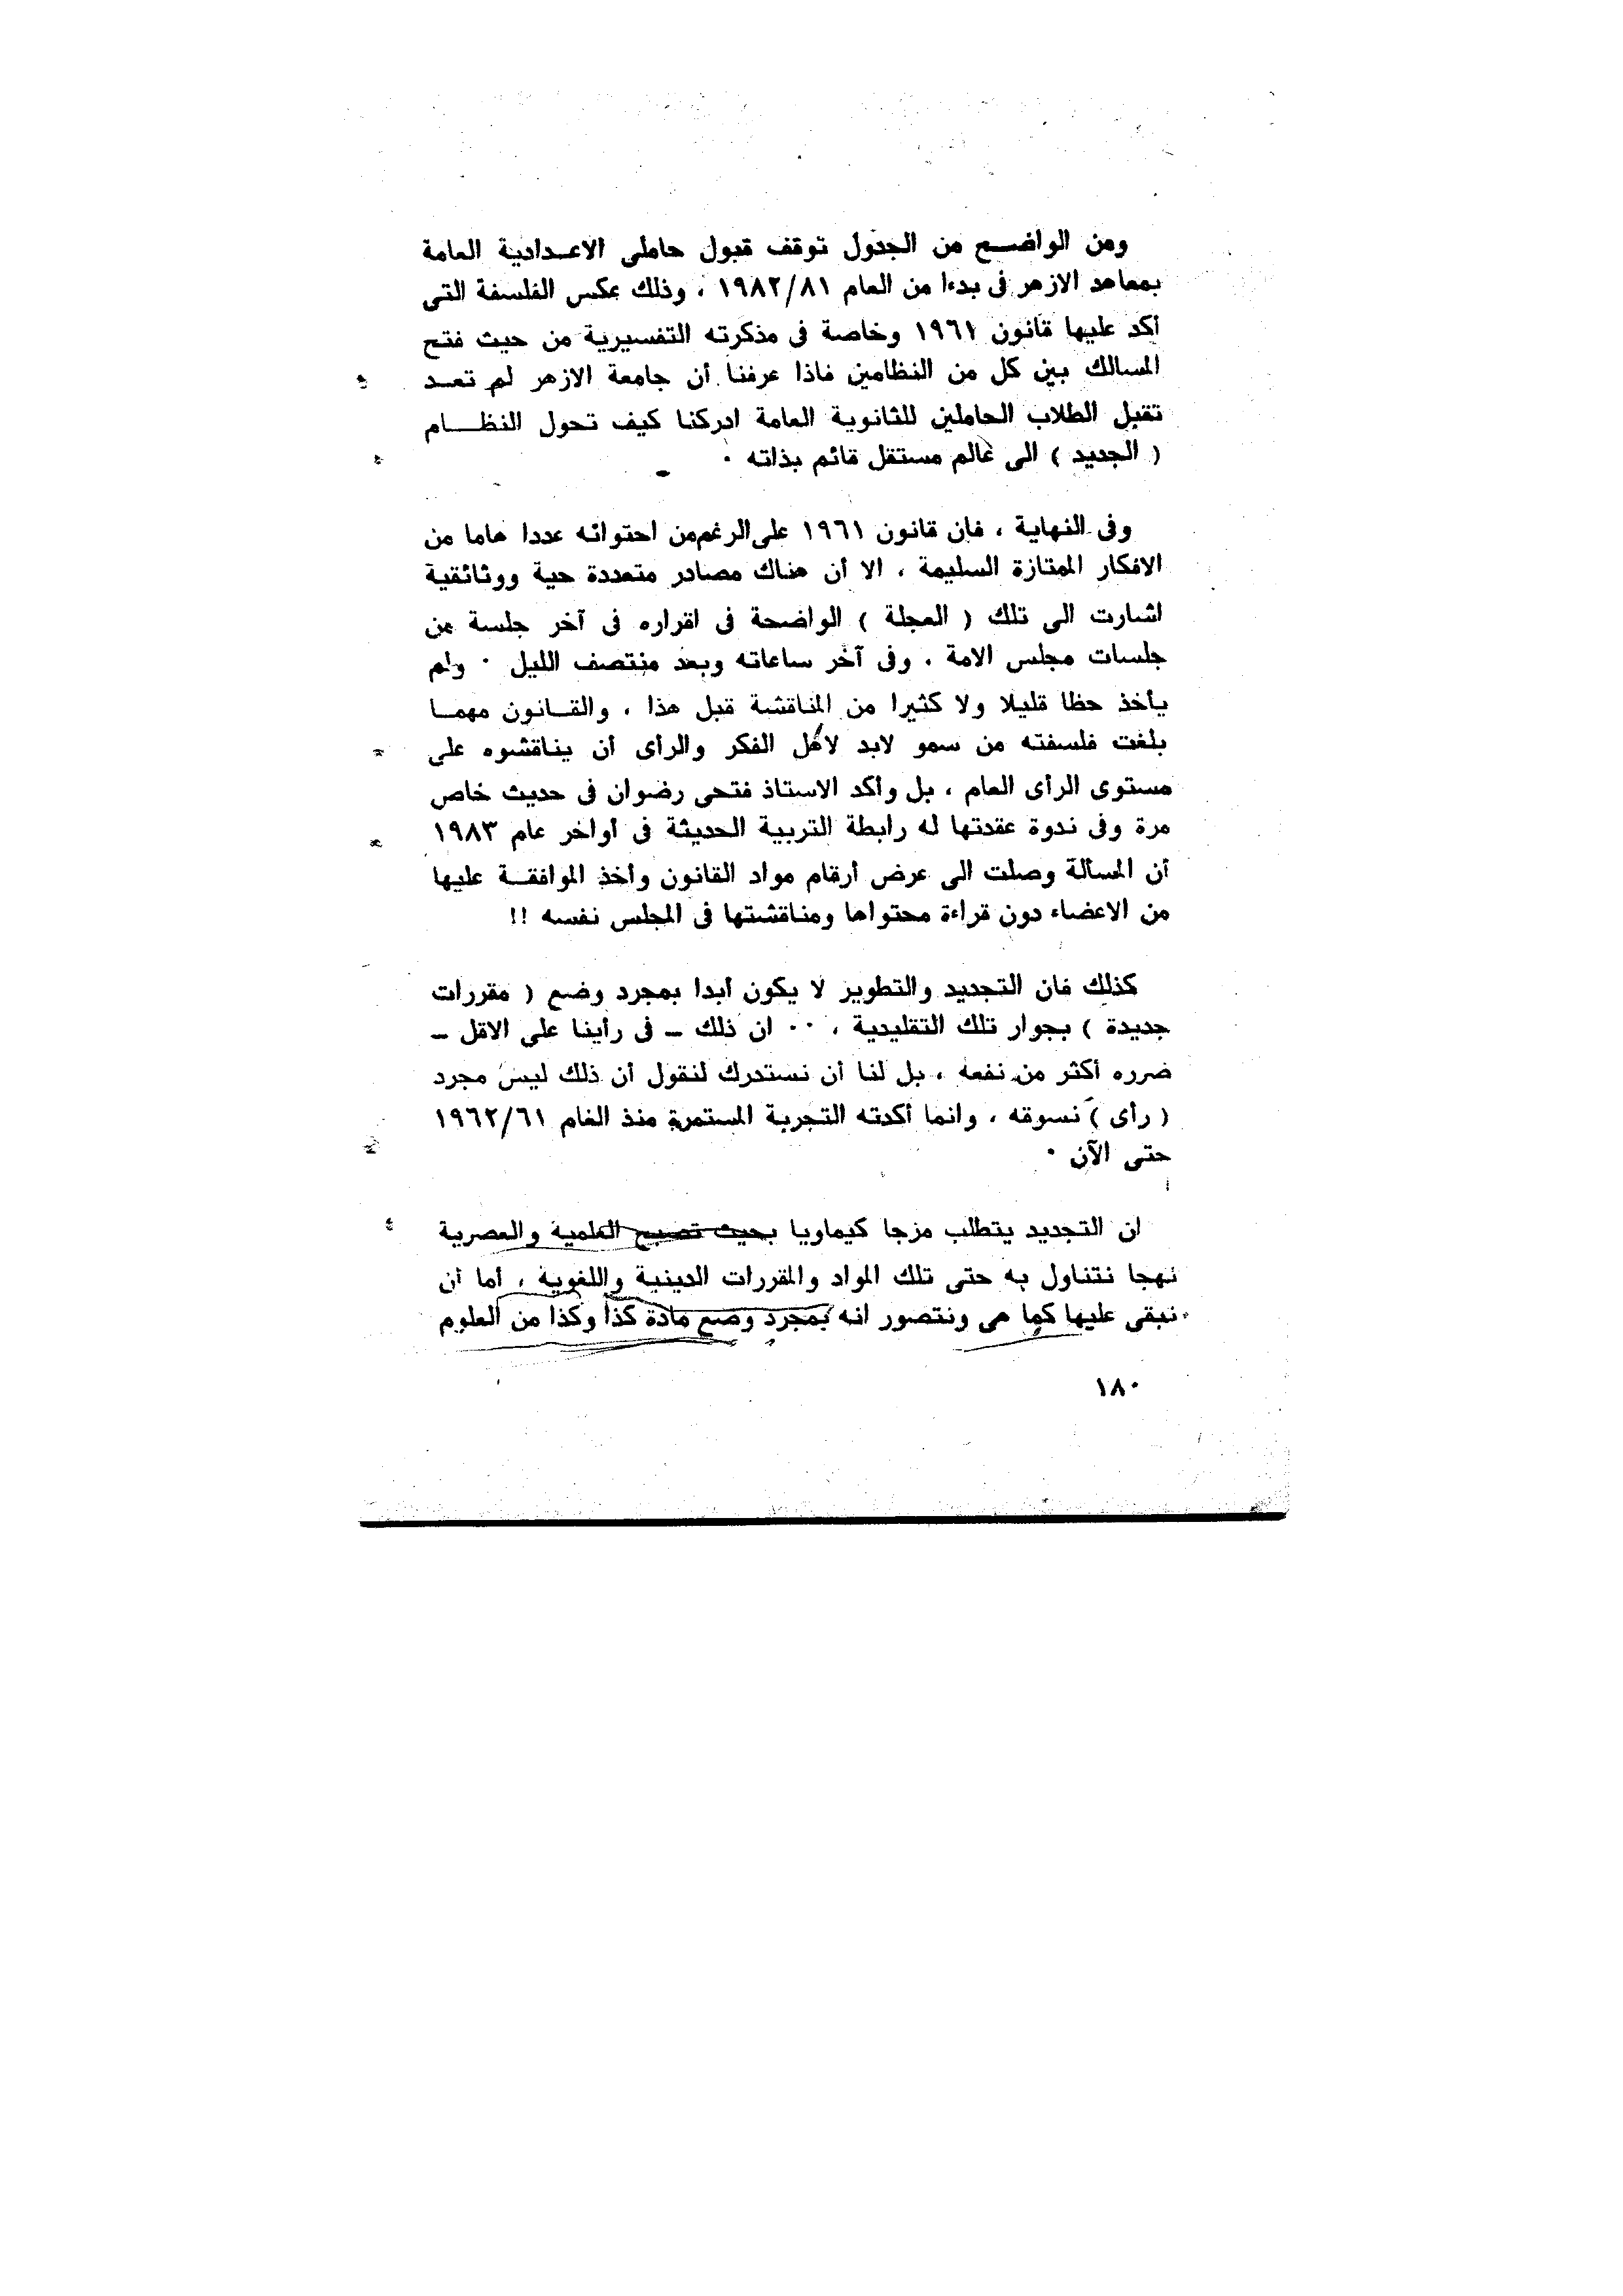 ومن الواضـــع من الجدول توقف قبول حاملى الاعـدادية العامة
بمعاهد الازهر فى بدءا من العام ١٩٨٢/٨١ ، وذلك عكس الفلسفة التى
أكد عليها قانون ١٩٦١ وخاصة فى مذكرته التفسيرية من حيث فتح
المسالك بين كل من النظامين فاذا عرفنا أن جامعة الازهر لم تعـد
تقبل الطلاب الحاملين للثانوية العامة ادركنا كيف تحول النظـــام
( الجديد ) الى عالم مستقل قائم بذاته ٠
وفى النهاية ، فان قانون ١٩٦١ على الرغم من احتوائه عددا هاما من
الافكار الممتازة السليمة ، الا أن هناك مصادر متعددة حية ووثائقية
اشارت الى تلك ( العجلة ) الواضحة فى اقراره فى آخر جلسة من
جلسات مجلس الامة ، وفى آخر ساعاته وبعد منتصف الليل ٠ ولم
يأخذ حظا قليلا ولا كثيرا من المناقشة قبل هذا ، والقـانون مهمـا
بلغت فلسفته من سمو لابد لاهل الفكر والرأى أن يناقشوه على
مستوى الرأى العام ، بل وأكد الاستاذ فتحى رضوان فى حديث خاص
مرة وفى ندوة عقدتها له رابطة التربية الحديثة فى أواخر عام ١٩٨٣
أن المسألة وصلت الى عرض أرقام مواد القانون وأخذ الموافقـة عليها
من الاعضاء دون قراءة محتواها ومناقشتها فى المجلس نفسه !!
كذلك فان التجديد والتطوير لا يكون أبدا بمجرد وضع ( مقررات
جديدة ) بجوار تلك التقليدية ، ٠٠ ان ذلك ــ فى رأينا على الاقل ــ
ضرره أكثر من نفعه ، بل لنا أن نستدرك لنقول أن ذلك ليس مجرد
( رأى ) نسوقه ، وانما أكدته التجربة المستمرة منذ العام ١٩٦٢/٦١
حتى الآن ٠
ان التجديد يتطلب مزجا كيماويا بحيث تصبح العلمية والعصرية
نهجا نتناول به حتى تلك المواد والمقررات الدينية واللغوية ، أما أن
نبقى عليها كما هى ونتصور انه بمجرد وضع مادة كذا وكذا من العلوم
١٨٠